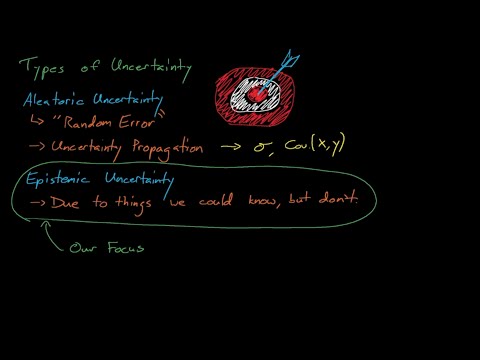 Types of Uncertainty
Aleatoric Uncertainty
↳ "Random Error"
→ Uncertainty Propagation → σ, Cov.(x,y)
Epistemic Uncertainty
→ Due to things we could know, but don't.
Our Focus